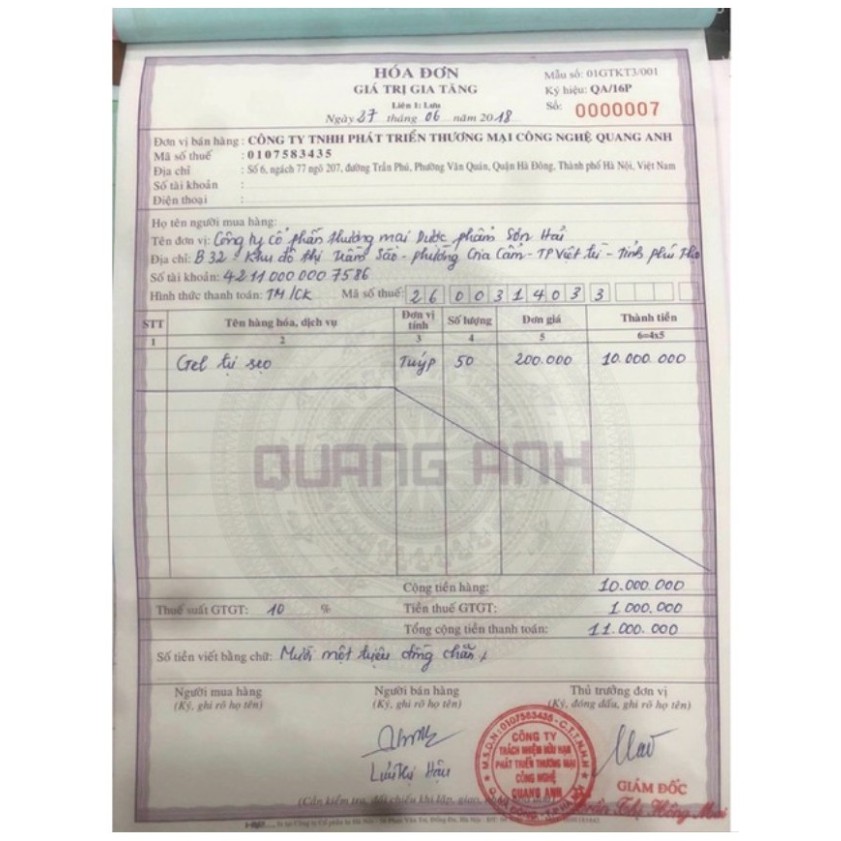 HÓA ĐƠN
GIÁ TRỊ GIA TĂNG
Liên 1: Lưu
Ngày 27 tháng 06 năm 2018
Mẫu số: 01GTKT3/001
Ký hiệu: QA/16P
Số: 0000007
Đơn vị bán hàng : CÔNG TY TNHH PHÁT TRIỂN THƯƠNG MẠI CÔNG NGHỆ QUANG ANH
Mã số thuế : 0107583435
Địa chỉ : Số 6, ngách 77 ngõ 207, đường Trần Phú, Phường Văn Quán, Quận Hà Đông, Thành phố Hà Nội, Việt Nam
Số tài khoản :
Điện thoại :
Họ tên người mua hàng:
Tên đơn vị: Công ty cổ phần thương mại Dược phẩm Sơn Hải
Địa chỉ: B32 - Khu đô thị Trầm Sào - phường Gia Cẩm - TP Việt Trì - Tỉnh Phú Thọ
Số tài khoản: 4211000007586
Hình thức thanh toán: TM/CK Mã số thuế: 2600314033
STT Tên hàng hóa, dịch vụ Đơn vị tính Số lượng Đơn giá Thành tiền
1 2 3 4 5 6=4x5
Gel trị sẹo Tuýp 50 200.000 10.000.000
QUANG ANH
Cộng tiền hàng: 10.000.000
Thuế suất GTGT: 10 % Tiền thuế GTGT: 1.000.000
Tổng cộng tiền thanh toán: 11.000.000
Số tiền viết bằng chữ: Mười một triệu đồng chẵn
Người mua hàng Người bán hàng Thủ trưởng đơn vị
(Ký, ghi rõ họ tên) (Ký, ghi rõ họ tên) (Ký, đóng dấu, ghi rõ họ tên)
M.S.D.N: 0107583435 - C.T.T.N.H.H
CÔNG TY
TRÁCH NHIỆM HỮU HẠN
PHÁT TRIỂN THƯƠNG MẠI
CÔNG NGHỆ
QUANG ANH
GIÁM ĐỐC
Thị Hồng Mai
(Cần kiểm tra, đối chiếu khi lập, giao,